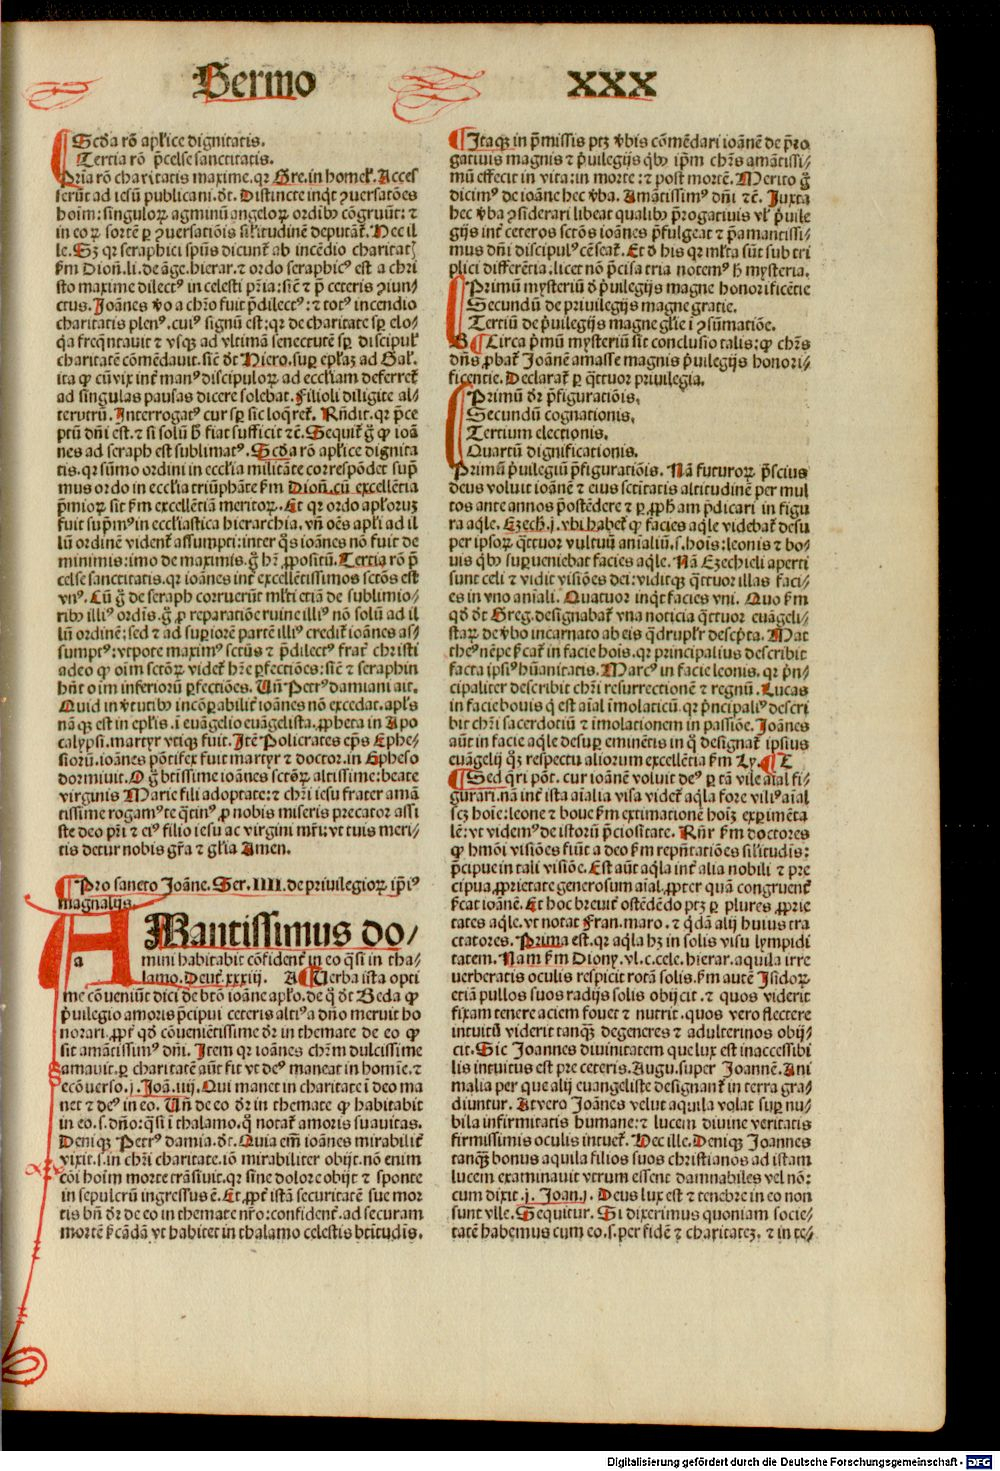 Sermo XXX
Scďa rō apl'ice dignitatis.
Tertia rō p̄celse sanctitatis.
Pria rō charitatis maxime. qr Gre. in homeł. Acces
serūt ad iesū publicani. dt. Distincte inq̇t ꝯuersatōes
hoīm: singuloꝝ agminū angeloꝝ ordibꝰ cōgruūt: ⁊
in eoꝝ sortē ꝑ ꝯuersatiōis sil'itudinē deputāt̃. Hec il
le. Sꝫ qr seraphici spūs dicunt̃ ab incēdio charitat̃
ẜm Dioñ. li. de āge. hierar. ⁊ ordo seraphicꝰ est a chri
sto maxime dilectꝰ in celesti pr̄ia: sic̄ ⁊ p̄ ceteris ꝯiun/
ctus. Joānes v̄o a chr̄o fuit p̄dilectꝰ: ⁊ totꝰ incendio
charitatis plenꝰ. cuiꝰ signū est: qr de charitate sꝑ elo/
q̄a freq̄ntauit ⁊ vsqꝫ ad vltimā senectutē sꝑ discipuł
charitatē cōmēdauit. sic̄ dt Hiero. suꝑ ep̄laꝫ ad Gal̄.
ita ꝙ cū vix int̃ manꝰ discipuloꝝ ad eccl'iam deferret̃
ad singulas pausas dicere solebat. Filioli diligite al/
terutrū. Interrogatꝰ cur sꝑ sic loq̄ret̃. Rñdit. qr p̄ce
ptū dñi est. ⁊ si solū ħ fiat sufficit ⁊c̄. Sequit̃ g̊ ꝙ ioā
nes ad seraph est sublimatꝰ. Scďa rō apl'ice dignita
tis. qr sūmo ordini in eccl'ia militāte correspōdet sup̄
mus ordo in eccl'ia triūphāte ẜm Dioñ. cū excellētia
p̄mioꝝ sit ẜm excellētiā meritoꝝ. Et qr ordo apl'oruꝫ
fuit sup̄mꝰ in eccl'iastica hierarchia. vñ oēs apl'i ad il
lū ordinē vident̃ assumpti: inter q̊s ioānes nō fuit de
minimis: imo de maximis. g̊ hr̄ ꝓpositū. Tertia rō p̄
celse sanctitatis. qr ioānes int̃ excellētissimos sctōs est
vnꝰ. Cū g̊ de seraph corruerūt ml'ti etiā de sublimio/
ribꝰ illiꝰ ordīs. g̊ ꝓ reparatiōe ruine illiꝰ nō solū ad il
lū ordinē: sed ⁊ ad suꝑiorē partē illiꝰ credit̃ ioānes as/
sumptꝰ: vtpote maximꝰ sctūs ⁊ p̄dilectꝰ frat̃ christi
adeo ꝙ oīm sctōꝝ videt̃ hr̄e ꝑfectiōes: sic̄ ⁊ seraphin
hn̄t oīm inferiorū ꝑfectiōes. Uñ Petrꝰ damiani ait.
Quid in v̄tutibꝰ incōꝑabilit̃ ioānes nō excedat. apl's
nāqꝫ est in ep̄lis. ī euāgelio euāgelista. ꝓpheta in Apo
calypsi. martyr vtiqꝫ fuit. Itē Policrates ep̄s Ephe/
siorū. ioānes pōtifex fuit martyr ⁊ doctor. in Epheso
dormiuit. O g̊ btīssime ioānes sctōꝝ altissime: beate
virginis Marie fili adoptate: ⁊ chr̄i iesu frater amā
tissime rogamꝰ te q̄tinꝰ ꝓ nobis miseris precator assi
ste deo pr̄i ⁊ eiꝰ filio iesu ac virgini mr̄i: vt tuis meri/
tis detur nobis gr̄a ⁊ gl'ia Amen.
Pro sancto Joāne. Ser. IIII. de priuilegioꝝ ip̄iꝰ
magnalijs.
AMantissimus do/
mini habitabit cōfident̃ in eo q̄si in tha/
lamo. Deut̃. xxxiij. A Uerba ista opti
me cōueniūt dici de btō ioāne apl'o. de q̊ dt Beda ꝙ
p̄uilegio amoris p̄cipui ceteris altiꝰ a dño meruit ho
norari. ꝓpt̃ qď cōuenientissime dr̄ in themate de eo ꝙ
sit amātissimꝰ dñi. Item qr ioānes chr̄m dulcissime
amauit. ꝑ charitatē aūt fit vt deꝰ maneat in homīe. ⁊
ecōuerso. j. Joā. iiij. Qui manet in charitate ī deo ma
net ⁊ deꝰ in eo. Uñ de eo dr̄ in themate ꝙ habitabit
in eo. s. dño: q̄si ī thalamo. q̊ notat̃ amoris suauitas.
Deniqꝫ Petrꝰ damia. dt. Quia em̄ ioānes mirabilit̃
vixit. s. in chr̄i charitate. iō mirabiliter obijt. nō enim
cōi hoīm morte trāsiuit. qr sine dolore obijt ⁊ sponte
in sepulcrū ingressus ē. Et ꝓpt̃ istā securitatē sue mor
tis bñ dr̄ de eo in themate nr̄o: confident̃. ad securam
mortē ẜcādā vt habitet in thalamo celestis btītudīs.
Itaqꝫ in p̄missis ptꝫ v̄bis cōmēdari ioānē de p̄ro
gatiuis magnis ⁊ p̄uilegijs q̄bꝰ ip̄m chr̄s amātissi/
mū effecit in vita: in morte: ⁊ post mortē. Merito g̊
dicimꝰ de ioāne hec v̄ba. Amātissimꝰ dñi ⁊c̄. Juxta
hec v̄ba ꝯsiderari libeat qualibꝰ p̄rogatiuis vl' p̄uile
gijs int̃ ceteros sctōs ioānes p̄fulgeat ⁊ p̄amantissi/
mus dñi discipulꝰ cēseat̃. Et ď his qr ml'ta sūt sub tri
plici differētia. licet nō p̄cisa tria notemꝰ ħ mysteria.
Primū mysteriū ď p̄uilegijs magne honorificētie
Secundū de priuilegijs magne gratie.
Tertiū de p̄uilegijs magne gl'ie ī ꝯsūmatiōe.
B Circa p̄mū mysteriū sit conclusio talis: ꝙ chr̄s
dñs ꝓbat̃ Joānē amasse magnis p̄uilegijs honori/
ficentie. Declarat̃ ꝑ q̄ttuor priuilegia.
Primū dr̄ p̄figuratiōis.
Secundū cognationis.
Tertium electionis.
Quartū dignificationis.
Primū p̄uilegiū p̄figuratiōis. Nā futuroꝝ p̄scius
deus voluit ioānē ⁊ eius sctītatis altitudinē per mul
tos ante annos p̄ostēdere ⁊ ꝑ ꝓpħam p̄dicari in figu
ra aq̄le. Ezech. j. vbi habet̃ ꝙ facies aq̄le videbat̃ desu
per ipsoꝝ q̄ttuor vultuū aīaliū. s. hoīs: leonis ⁊ bo/
uis q̄bꝰ suꝑueniebat facies aq̄le. Nā Ezechieli aperti
sunt celi ⁊ vidit visiōes dei: viditqꝫ q̄ttuor illas faci/
es in vno aīali. Quatuor inq̇t facies vni. Quo ẜm
qď dt Greg. designabat̃ vna noticia q̄ttuor euāgeli/
staꝝ de v̄bo incarnato ab eis q̄drupl'r descp̄ta. Mat
theꝰ nēpe ẜcat̃ in facie hoīs. qr principalius describit
facta ipsiꝰ hūanitatis. Marcꝰ in facie leonis. qr p̄n/
cipaliter describit chr̄i resurrectionē ⁊ regnū. Lucas
in facie bouis q̇ est aīal īmolaticiū. qr p̄ncipaliꝰ descri
bit chr̄i sacerdotiū ⁊ īmolationem in passiōe. Joānes
aūt in facie aq̄le desuꝑ eminētis in q̊ designat̃ ipsius
euāgelij q̊ꝫ respectu aliorum excellētia ẜm Ly. C
Sed q̄ri pōt. cur ioānē voluit deꝰ ꝑ tā vile aīal fi/
gurari. nā int̃ ista aīalia visa videt̃ aq̄la fore viliꝰ aīal
scꝫ hoīe: leone ⁊ boue ẜm extimationē hoīꝫ exꝑimēta
lē: vt videmꝰ de istorū p̄ciositate. Rñr ẜm doctores
ꝙ hmōi visiōes fiūt a deo ẜm rep̄ntatiōes sil'itudīs:
p̄cipue in tali visiōe. Est aūt aq̄la int̃ alia nobili ⁊ pre
cipua ꝓprietate generosum aīal. ꝓpter quā congruent̃
ẜcat ioānē. Et hoc breuit̃ ostēdēdo ptꝫ ꝑ plures ꝓprie
tates aq̄le. vt notat Fran. maro. ⁊ q̄dā alij huius tra
ctatores. Prima est. qr aq̄la hꝫ in solis visu lympidi
tatem. Nam ẜm Diony. vl. c. cele. hierar. aquila irre
uerberatis oculis respicit rotā solis. ẜm autē Isidoꝝ
etiā pullos suos radijs solis obijcit. ⁊ quos viderit
fixam tenere aciem fouet ⁊ nutrit. quos vero flectere
intuitū viderit tanqꝫ degeneres ⁊ adulterinos obij/
cit. Sic Joannes diuinitatem que lux est inaccessibi
lis intuitus est pre ceteris. Augu. super Joannē. Ani
malia per que alij euangeliste designant̃ in terra gra/
diuntur. At vero Joānes velut aquila volat suꝑ nu/
bila infirmitatis humane: ⁊ lucem diuine veritatis
firmissimis oculis intuet̃. Hec ille. Deniqꝫ Joannes
tanqꝫ bonus aquila filios suos christianos ad istam
lucem examinauit vtrum essent damnabiles vel nō:
cum dixit. j. Joan. j. Deus lux est ⁊ tenebre in eo non
sunt vlle. Sequitur. Si dixerimus quoniam socie/
tatē habemus cum eo. s. per fidē ⁊ charitateꝫ. ⁊ in te/
Digitalisierung gefördert durch die Deutsche Forschungsgemeinschaft - DFG